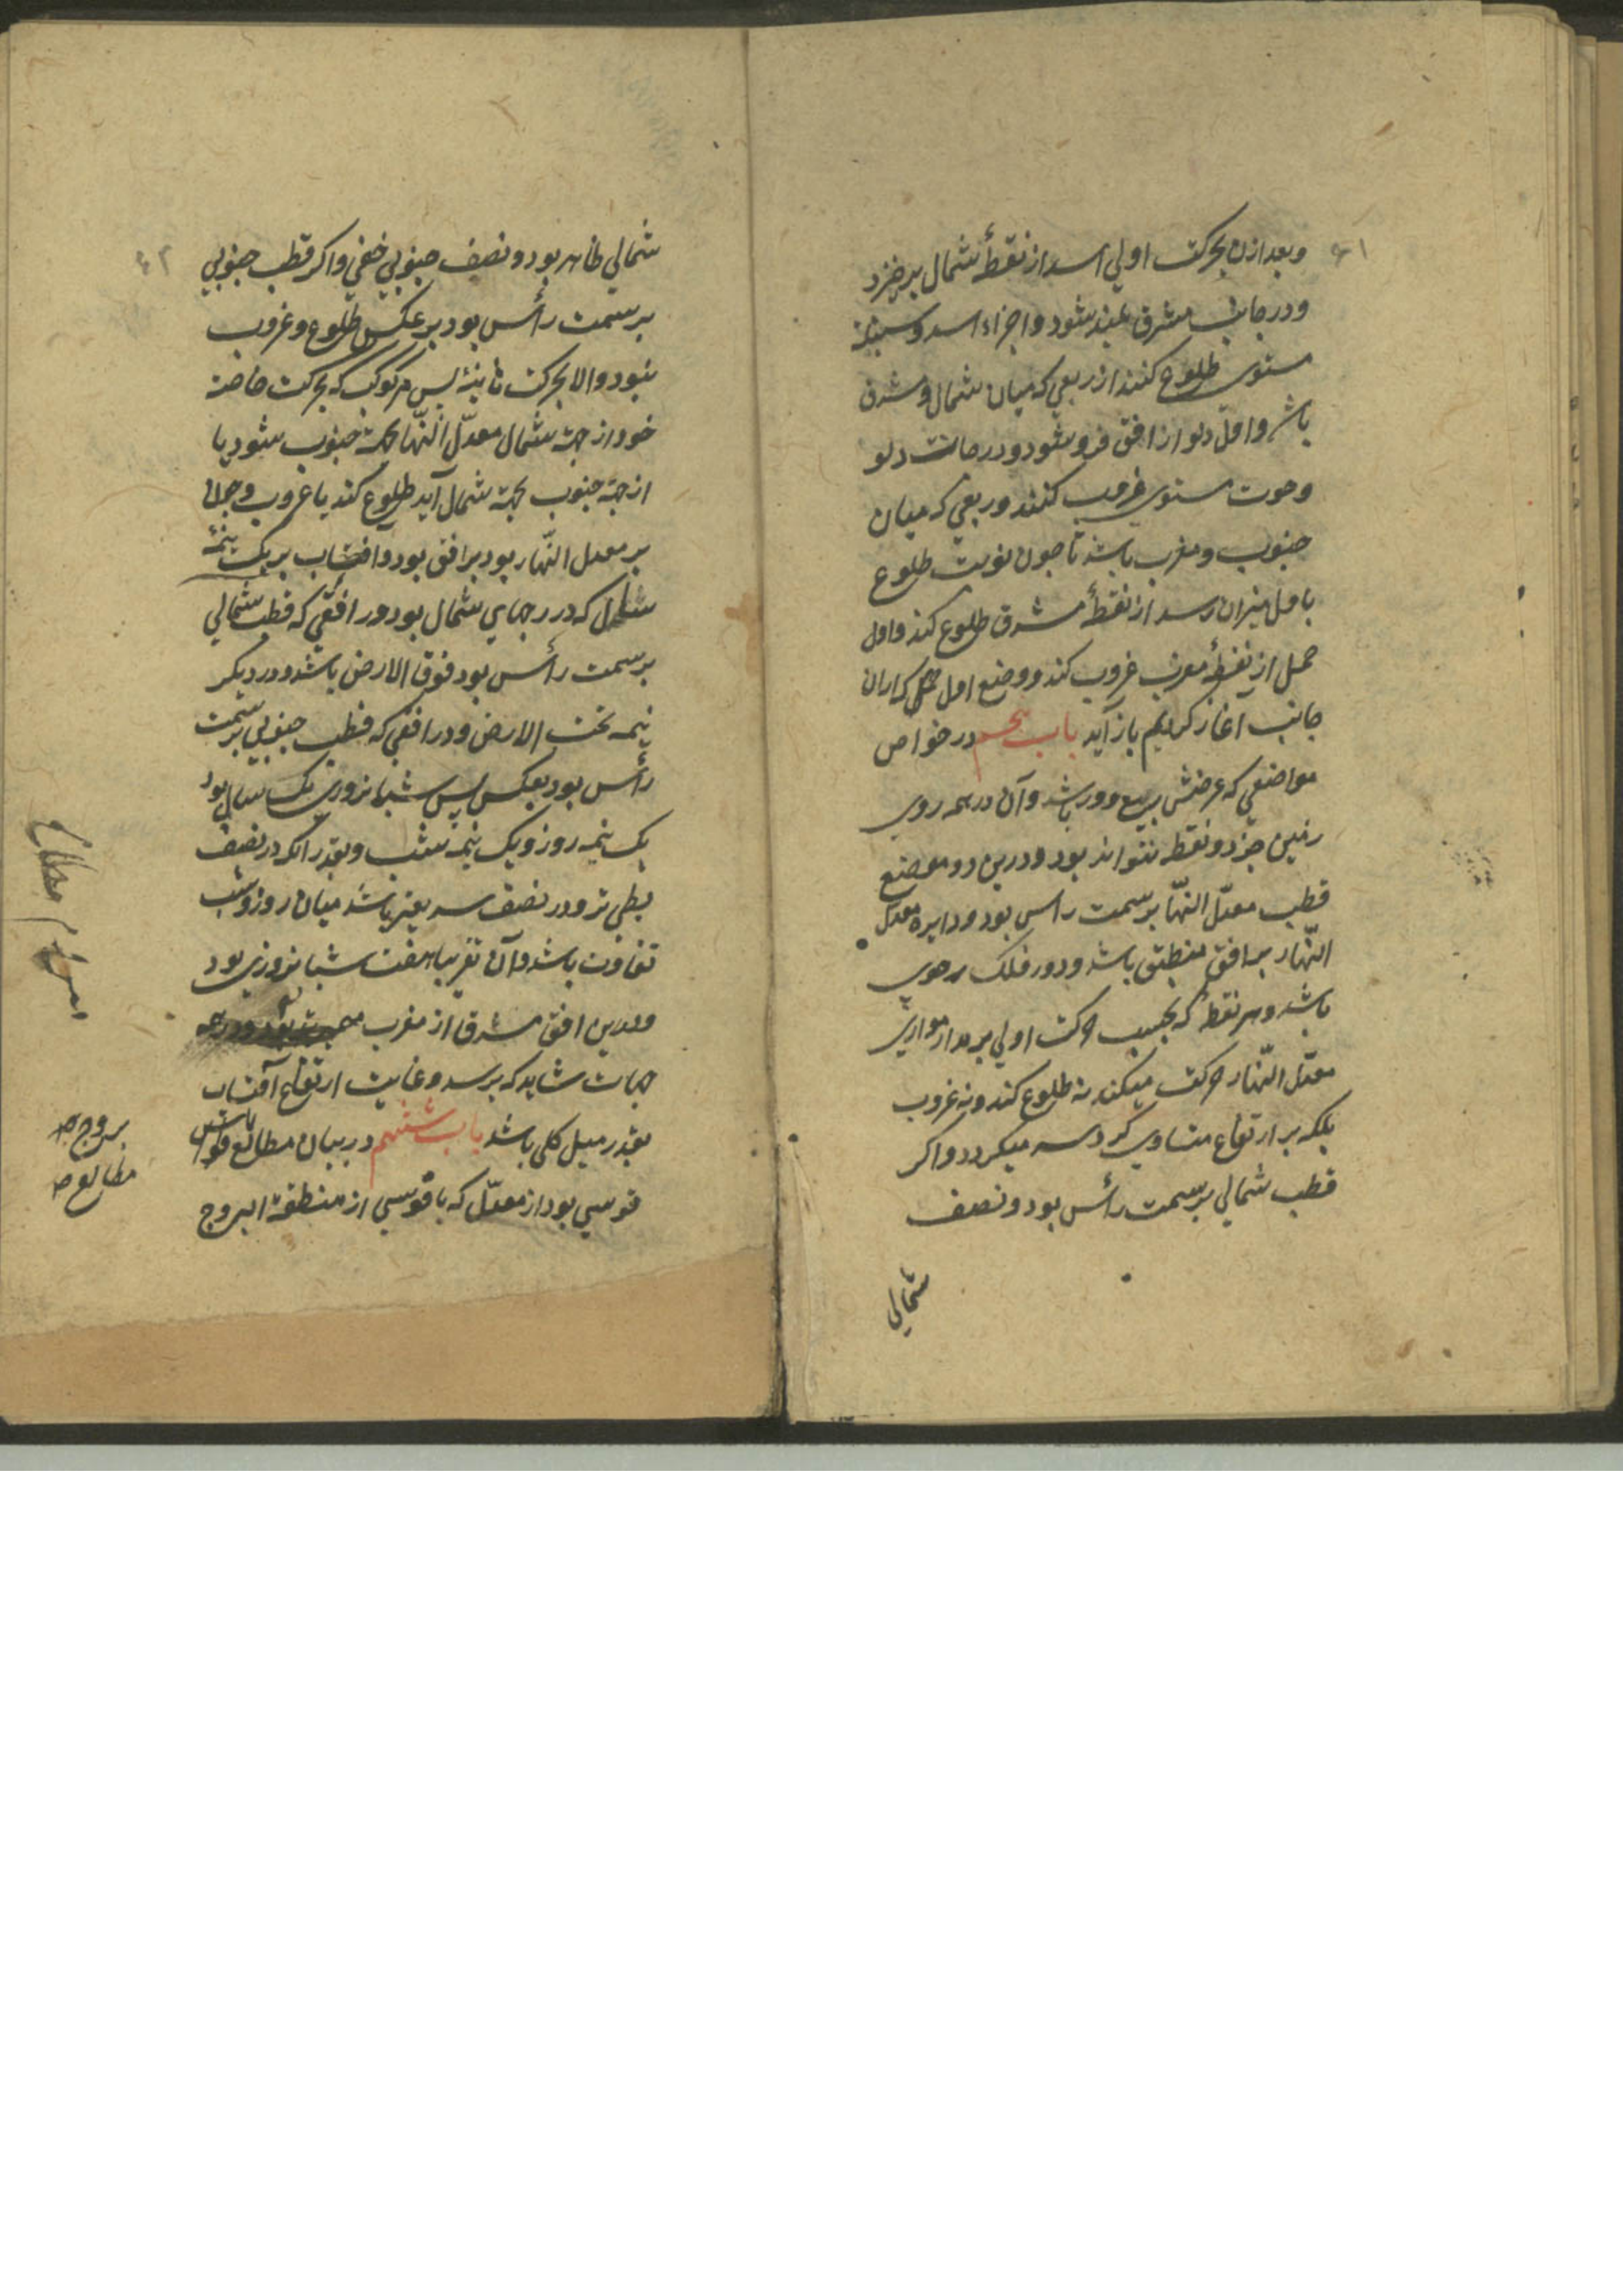 ۴۱
وبعد ازن بحرکت اولی اسد از نقطهٔ شمال برخیزد
ودر جانب مشرق بلند شود واجزاء اسد وسنبله
مستوی طلوع کنند از ربعی که میان شمال ومشرق
باشد واول دلو از افق فرو شود ودر جانب دلو
وحوت مستوی غروب کنند در ربعی که میان
جنوب ومغرب باشد تا چون نوبت طلوع
باول میزان رسد از نقطهٔ مشرق طلوع کند واول
حمل از نقطهٔ مغرب غروب کند ووضع اول که ازان
جانب آغاز کردیم باز آید باب پنجم در خواص
مواضعی که عرضش ربع دور باشد وآن در همه روی
زمین جز دو نقطه نتواند بود ودرین دو موضع
قطب معدّل النهّار بر سمت راس بود ودایره معدل
النهّار بر افق منطبق باشد ودور فلک رحوی
باشد وهر نقطه که بحسب حرکت اولی بر مدار موازی
معدّل النهّار حرکت میکند نه طلوع کند ونه غروب
بلکه بر ارتفاع متساوی گرد سر میکردد واکر
قطب شمالی بر سمت رأس بود ونصف
شمالی
۴۲
شمالی ظاهر بود ونصف جنوبی خفی واکر قطب جنوبی
بر سمت رأس بود بر عکس طلوع وغروب
نبود والا بحرکت ثانیه پس هر کوکب که بحرکت خاصه
خود از جهة شمال معدّل النهّار بجهة جنوب شود یا
از جهة جنوب بجهة شمال آید طلوع کند یا غروب وچون
بر معدل النهّار بود بر افق بود وافتاب بر یک نیمهٔ
سال که در برجهای شمال بود در افقی که قطب شمالی
بر سمت رأس بود فوق الارض باشد ودر دیکر
نیمه تحت الارض ودر افقی که قطب جنوبی بر سمت
رأس بود بعکس پس شبانروزی یک سال بود
یک نیمه روز ویک نیمه شب وبقدر آنکه در نصف
بطی تر ودر نصف سریعتر باشد میان روز وشب
تفاوت باشد وآن تقریبا هفت شبانروزی بود
ودرین افق مشرق از مغرب
جهات شاید که برسد وغایت ارتفاع آفتاب
بقدر میل کلی باشد باب ششم در بیان مطالع قوس
قوسی بود از معدّل که با قوسی از منطقة البروج
بروج
مطالع